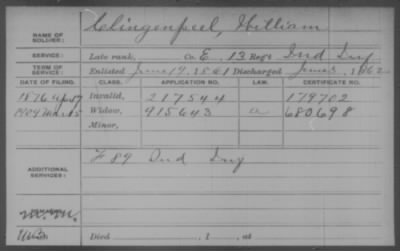 NAME OF SOLDIER: Clingenpeel, William
SERVICE: Late rank, Co. E, 13 Reg't Ind Inf
TERM OF SERVICE: Enlisted June 19, 1861 Discharged June 3, 1862
DATE OF FILING. CLASS. APPLICATION NO. LAW. CERTIFICATE NO.
1876 Apr 17 Invalid, 217544 179702
1909 Mar 5 Widow, 915643 680698
Minor,
ADDITIONAL SERVICES: F 89 Ind Inf
REMARKS:
Died , 1 , at